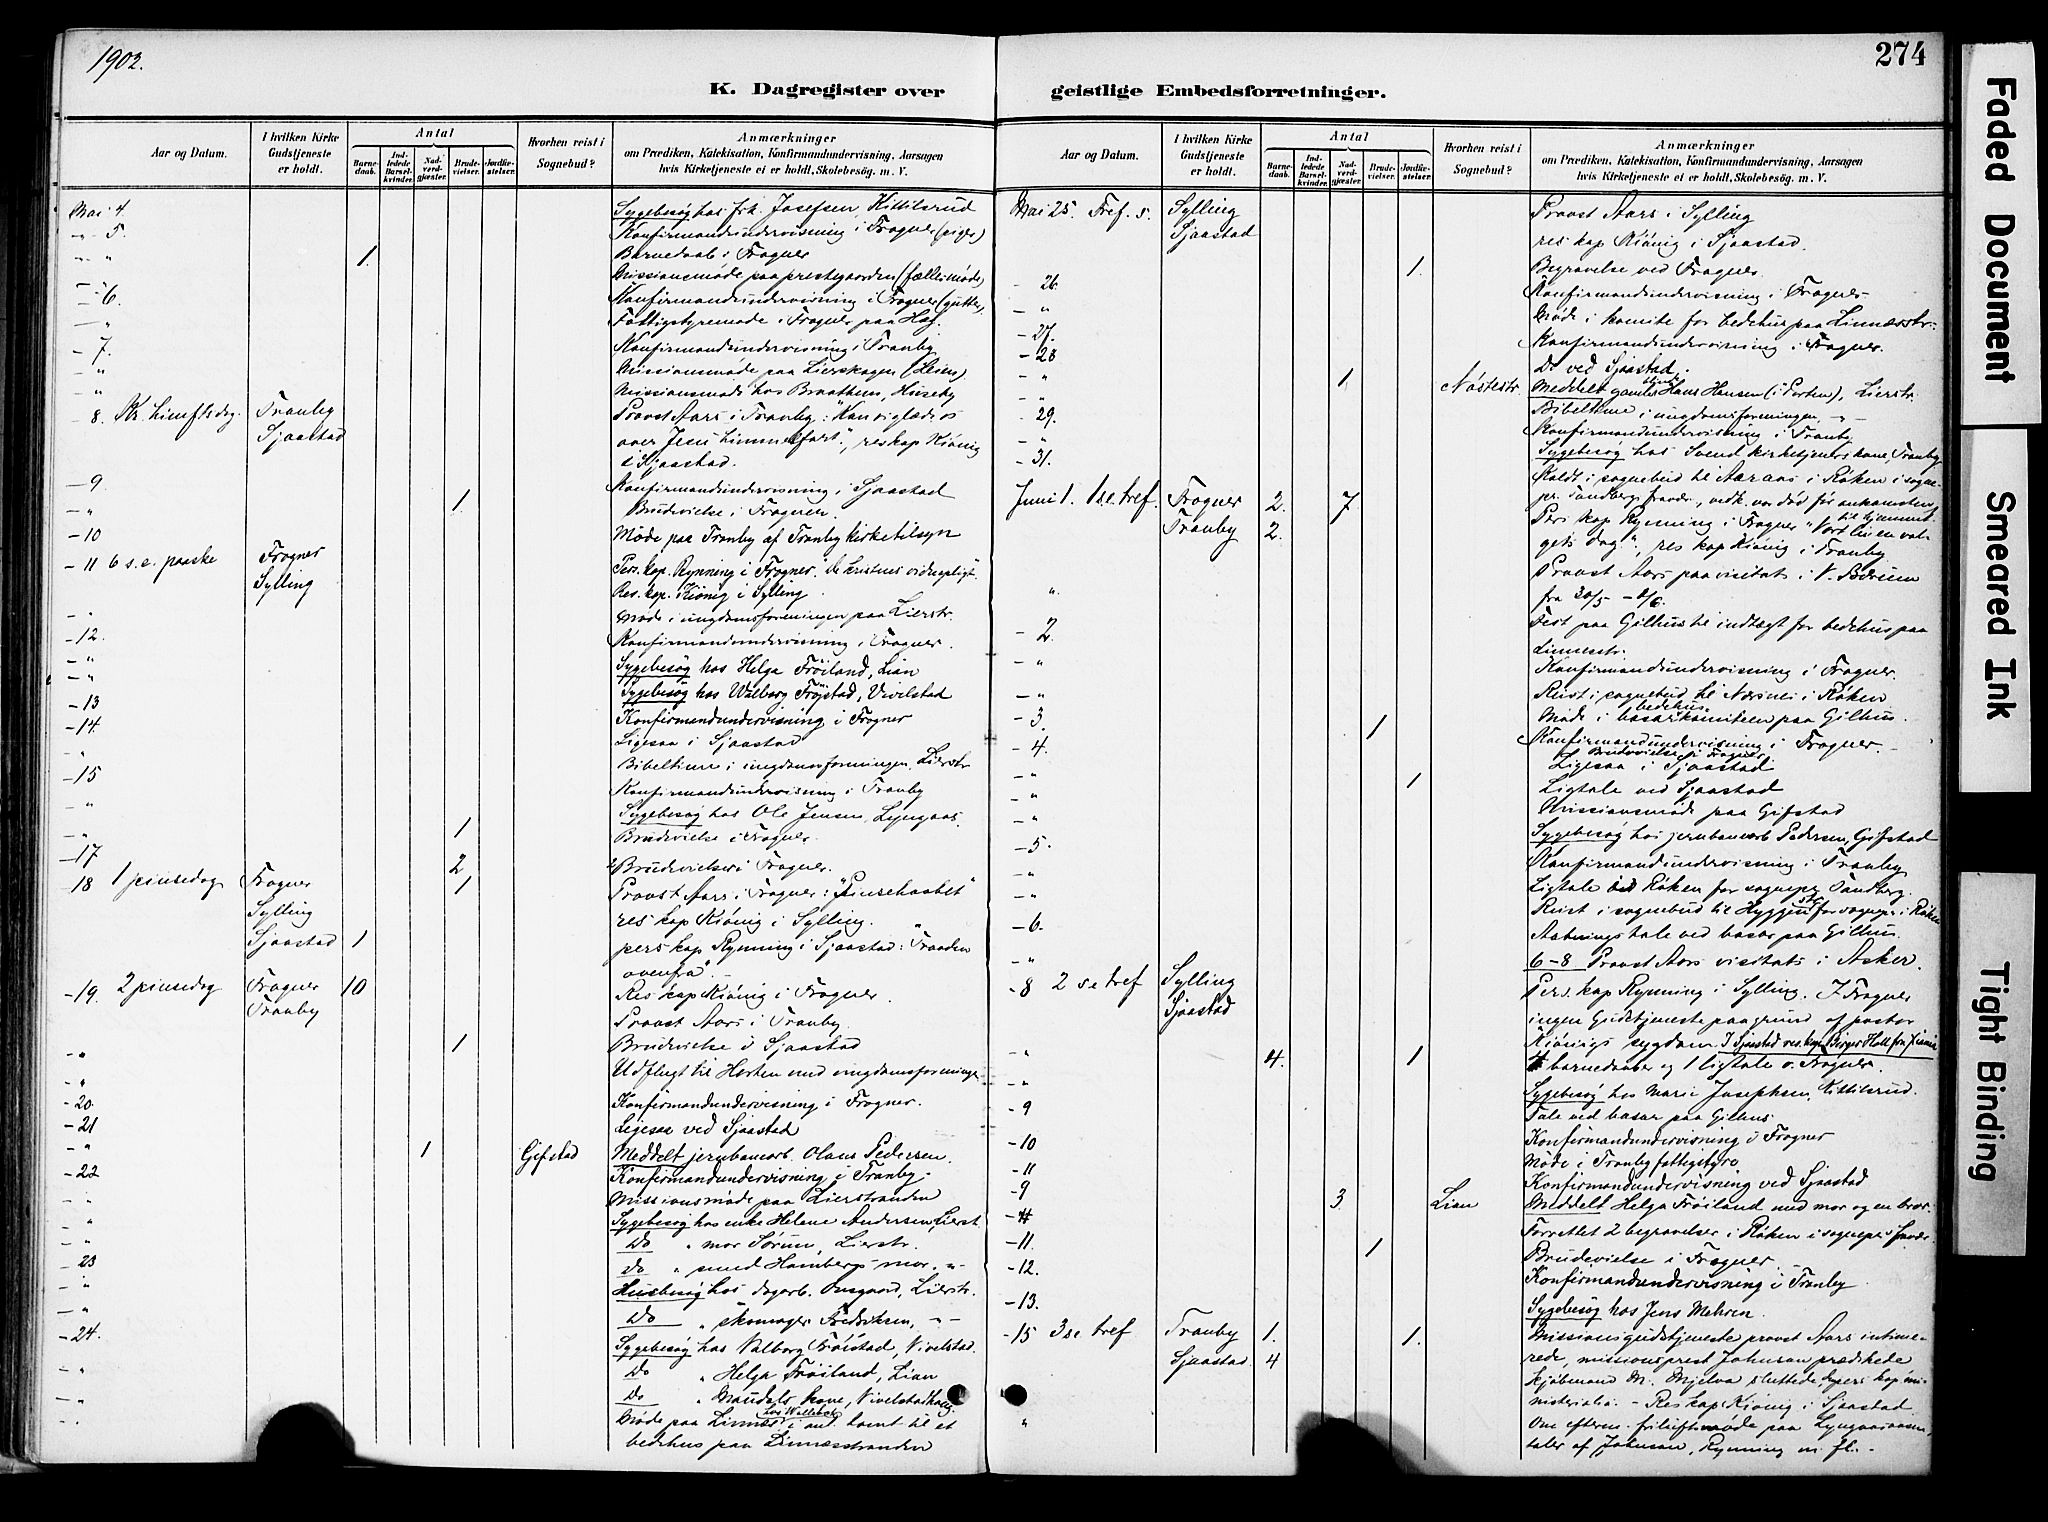 1902.
274
K. Dagregister over geistlige Embedsforretninger.
Aar og Datum.
I hvilken Kirke Gudstjeneste er holdt.
Antal
Barnedaab.
Indledede Barselkvinder.
Nadverdgjæster.
Brudevielser.
Jordfæstelser.
Hvorhen reist i Sognebud?
Anmærkninger
om Prædiken, Katekisation, Konfirmandundervisning, Aarsagen
hvis Kirketjeneste ei er holdt, Skolebesøg. m. V.
Mai 4. Sygebesøg hos frk. Josefsen Kittilsrud
-"- 5. Konfirmandundervisning i Frogner (piger)
-" " 1. Barnedaab i Frogner
Missionsmøde paa prestegaarden (fællesmøde)
-6. Konfirmandundervisning i Frogner (gutter)
-" Fattigstyremøde i Frogner paa Haj.
-7. Konfirmandundervisning i Tranby
-" Missionsmøde paa Lierskogen (Heim)
" Missionsmøde hos Braathen, Huseby
-8. Kr. himflsdag Tranby Provst Aars i Tranby: "Kan vi glæde os
Sjaastad over Jesu himmelfart", res kap Kiønig
i Sjaastad.
-9 Konfirmandundervisning i Sjaastad
-" 1 Brudevielse i Frogner.
-10 Møde paa Tranby af Tranby kirketilsyn
-11 6 s.e. paaske Frogner Pers. kap. Rynning i Frogner. De kristnes vidnepligt.
Sylling Res. kap. Kiønig i Sylling.
Møde i ungdomsforeningen paa Lierstr.
-12. Konfirmandundervisning i Frogner.
-" Sygebesøg hos Helga Frøiland, Lian
-" Sygebesøg hos Walborg Frøistad, Vivilstad
-13 Konfirmandundervisning i Frogner
-14. Ligesaa i Sjaastad
" Bibeltime i ungdomsforeningen, Lierstr
-15 Konfirmandundervisning i Tranby
-" Sygebesøg hos Ole Jensen, Lyngaas.
-" 1 Brudevielse i Frogner.
-17 2 2 Brudevielser i Frogner.
-18 1 pinsedag Frogner 1 Provst Aars i Frogner: "Pinsehaabet"
Sylling res kap Kiønig i Sylling.
Sjaastad 1 pers kap Rynning i Sjaastad: "Traaden
ovenfra".-
-19. 2 pinsedag Frogner 10 Res kap Kiønig i Frogner.
Tranby Provst Aars i Tranby.
-" 1 Brudevielse i Sjaastad
-" Udflugt til Horten med ungdomsforeninge
-20. Konfirmandundervisning i Frogner.
-21 Ligesaa ved Sjaastad
-" 1 Gifstad Meddelt jernbanearb. Olaus Pedersen.
-22 Konfirmandundervisning i Tranby.
" Missionsmøde paa Lierstranden
-" Sygebesøg hos enke Helene Andersen, Lierst.
-" Do " mor Sørum, Lierstr.
-23 do " smed Hambergs mor, -"-
-" Husbesøg hos dagarb. Omgaard, Lierstr.
-" Do " skomager Fredriksen, -"-
-24. Sygebesøg hos Valborg Frøistad, Vivelstad.
-" Do " Helga Frøiland, Lian
-" Do " Mandals kone, Vivelstadhaug.
Møde paa Linnæs i anl. tomt til et
bedehus paa Linnæsstranden
Mai 25. Tref. s. Sylling Provst Aars i Sylling
Sjaastad res kap Kiønig i Sjaastad.
1. Begravelse ved Frogner.
-26. Konfirmandundervisning i Frogner
-" Møde i komite for bedehus paa Linnæsstr.
-27. Konfirmandundervisning i Frogner.
-28 Do ved Sjaastad.
-" 1 Nøstestr. Meddelt gamle Hans Hansen (i Porten), Lierstr.
-" Bibeltime i ungdomsforeningen -"-
29. Konfirmandundervisning i Tranby
-" Sygebesøg hos Svend kirketjeners kone, Tranby
-31. Kaldt i sognebud til Aaraas i Røken i sogne-
pr. Tandbergs fravær, vedk. var død før ankomsten
Juni 1. 1 s.e. tref. Frogner 2. 7 Pers kap Rynning i Frogner "Vort liv en val-
Tranby 2. gets dag", res kap Kiønig i Tranby
" Provst Aars paa visitats i V. Bærum
fra 30/5 - 1/6.
-2. Fest paa Gilhus til indtægt for bedehus paa
Linnesstr.
-" Konfirmandundervisning i Frogner.
-" Reist i sognebud til Næsnes i Røken
-3. Møde i bedehus basarkomiteen paa Gilhus.
-4. 1 Konfirmandundervisning i Frogner.
Brudevielse i Frogner
-" Ligesaa i Sjaastad
-" 1 Ligtale ved Sjaastad
-" Missionsmøde paa Gifstad
Sygebesøg hos jernbanearb Pedersen, Gifstad
-5. Konfirmandundervisning i Tranby
-" Ligtale ved Røken for sognepr Tandberg.
-" Reist i sognebud til Hyggen for sognepr. i Røken
-6. Aabningstale ved basar paa Gilhus.
-" 6-8 Provst Aars visitats i Asker.
-8 2 s e tref Sylling Pers. kap Rynning i Sylling. I Frogner
Sjaastad ingen Gudstjeneste paa grund af pastor
Kiønigs sygdom. I Sjaastad res. kap. Birger Hall fra
-" 4. 1 4 barnedaaber og 1 ligtale v. Frogner.
-" Sygebesøg hos Marie Josephsen, Kittilsrud.
-9 Tale ved basar paa Gilhus.
-10 Konfirmandundervisning i Frogner
-11 Møde i Tranby fattigstyre
-9 Konfirmandundervisning ved Sjaastad
3. Lian Meddelt Helga Frøiland med mor og en bror.
-11. Forrettet 2 begravelser i Røken i sognepr. fravær
-11. 1 Brudevielse i Frogner
-12. Konfirmandundervisning i Tranby
-13. Sygebesøg hos Jens Mehren.
-15 3 s e tref Tranby 1. 1. Missionsgudstjeneste provst Aars intime-
Sjaastad 4 rede, missionsprest Johnson prædikede
kjøbmand M. Mjelva sluttede, pers kap mi-
nisterialia. - Res kap Kiønig i Sjaastad
" Om efterm. friluftsmøde paa Lyngaasaasen,
taler af Johnson, Rynning m. fl. -
Faded Document
Smeared Ink
Tight Binding